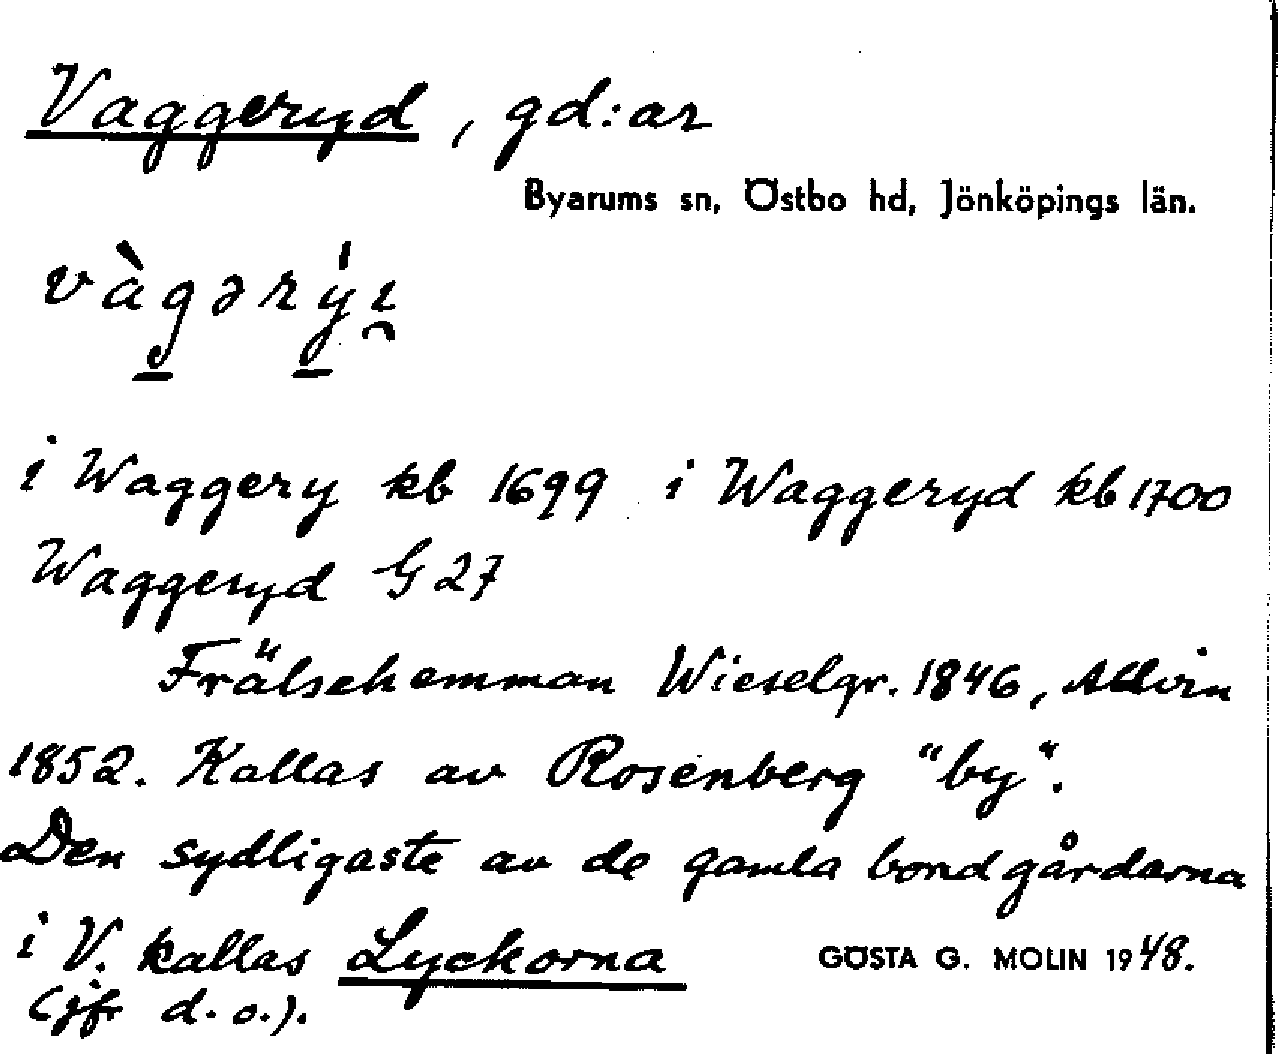 Vaggeryd, gd:ar
Byarums sn, Östbo hd, Jönköpings län.
vàgərýɪ̯
i Waggery kb 1699 i Waggeryd kb 1700
Waggeryd G 27
Frälsehemman Wieselgr. 1846, Allvin
1852. Kallas av Rosenberg "by".
Den sydligaste av de gamla bondgårdarna
i V. kallas Lyckorna
(jfr d. o.).
GÖSTA G. MOLIN 1948.